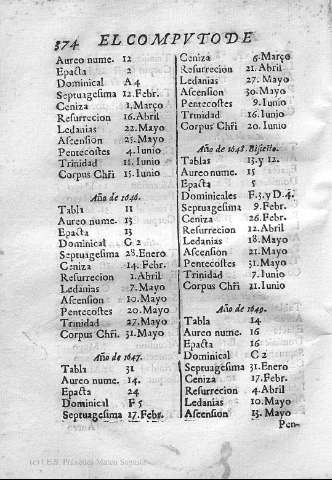 374 EL COMPVTO DE
Aureo nume. 12
Epacta 2
Dominical A 4
Septuagesima 12. Febr.
Ceniza 1. Março
Resurrecion 16. Abril
Ledanias 22. Mayo
Ascension 25. Mayo
Pentecostes 4. Iunio
Trinidad 11. Iunio
Corpus Chr̃i 15. Iunio
Año de 1646.
Tabla 11
Aureo nume. 13
Epacta 13
Dominical G 2
Septuagesima 28. Enero
Ceniza 14. Febr.
Resurrecion 1. Abril
Ledanias 7. Mayo
Ascension 10. Mayo
Pentecostes 20. Mayo
Trinidad 27. Mayo
Corpus Chr̃i. 31. Mayo
Año de 1647.
Tabla 31
Aureo nume. 14.
Epacta 24
Dominical F 5
Septuagesima 17. Febr.
Ceniza 6. Março
Resurrecion 21. Abril
Ledanias 27. Mayo
Ascension 30. Mayo
Pentecostes 9. Iunio
Trinidad 16. Iunio
Corpus Chr̃i 20. Iunio
Año de 1648. Bisiesto.
Tablas 13. y 12.
Aureo nume. 15
Epacta 5
Dominicales F. 3. y D. 4.
Septuagesima 9. Febr.
Ceniza 26. Febr.
Resurrecion 12. Abril
Ledanias 18. Mayo
Ascension 21. Mayo
Pentecostes 31. Mayo
Trinidad 7. Iunio
Corpus Chr̃i 11. Iunio
Año de 1649.
Tabla 14
Aureo nume. 16
Epacta 16
Dominical C 2
Septuagesima 31. Enero
Ceniza 17. Febr.
Resurrecion 4. Abril
Ledanias 10. Mayo
Ascension 13. Mayo
Pen-